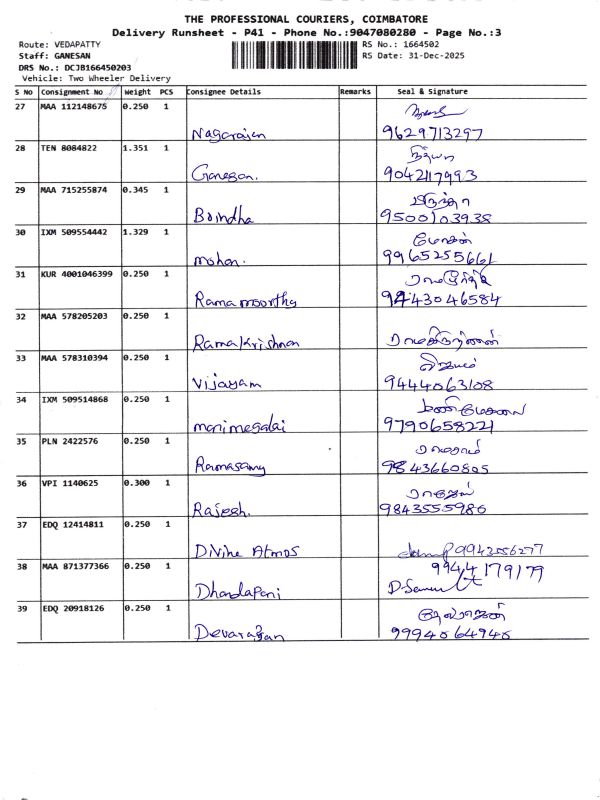 THE PROFESSIONAL COURIERS, COIMBATORE
Delivery Runsheet - P41 - Phone No.:9047080280 - Page No.:3
Route: VEDAPATTY
RS No.: 1664502
Staff: GANESAN
RS Date: 31-Dec-2025
DRS No.: DCJB166450203
Vehicle: Two Wheeler Delivery
S No Consignment No Weight PCS Consignee Details Remarks Seal & Signature
27 MAA 112148675 0.250 1
Nagarajan 9629713297
28 TEN 8084822 1.351 1 நித்யா
Ganesan. 9042117993
29 MAA 715255874 0.345 1 பிருந்தா
Brindha 9500103938
30 IXM 509554442 1.329 1 மோகன்
mohan. 9965255661
31 KUR 4001046399 0.250 1 ராமமூர்த்தி
Ramamoorthy 9443046584
32 MAA 578205203 0.250 1
Ramakrishnan ராமகிருஷ்ணன்
33 MAA 578310394 0.250 1 விஜயம்
Vijayam 9444063108
34 IXM 509514868 0.250 1 மணிமேகலை
manimegalai 9790658221
35 PLN 2422576 0.250 1
Ramasamy 9843660805
36 VPI 1140625 0.300 1 ராஜேஷ்
Rajesh. 9843555986
37 EDQ 12414811 0.250 1
Divine Atmos 9943556277
38 MAA 871377366 0.250 1 9944179179
Dhandapani
39 EDQ 20918126 0.250 1 தேவராஜன்
Devarajan 9994064946